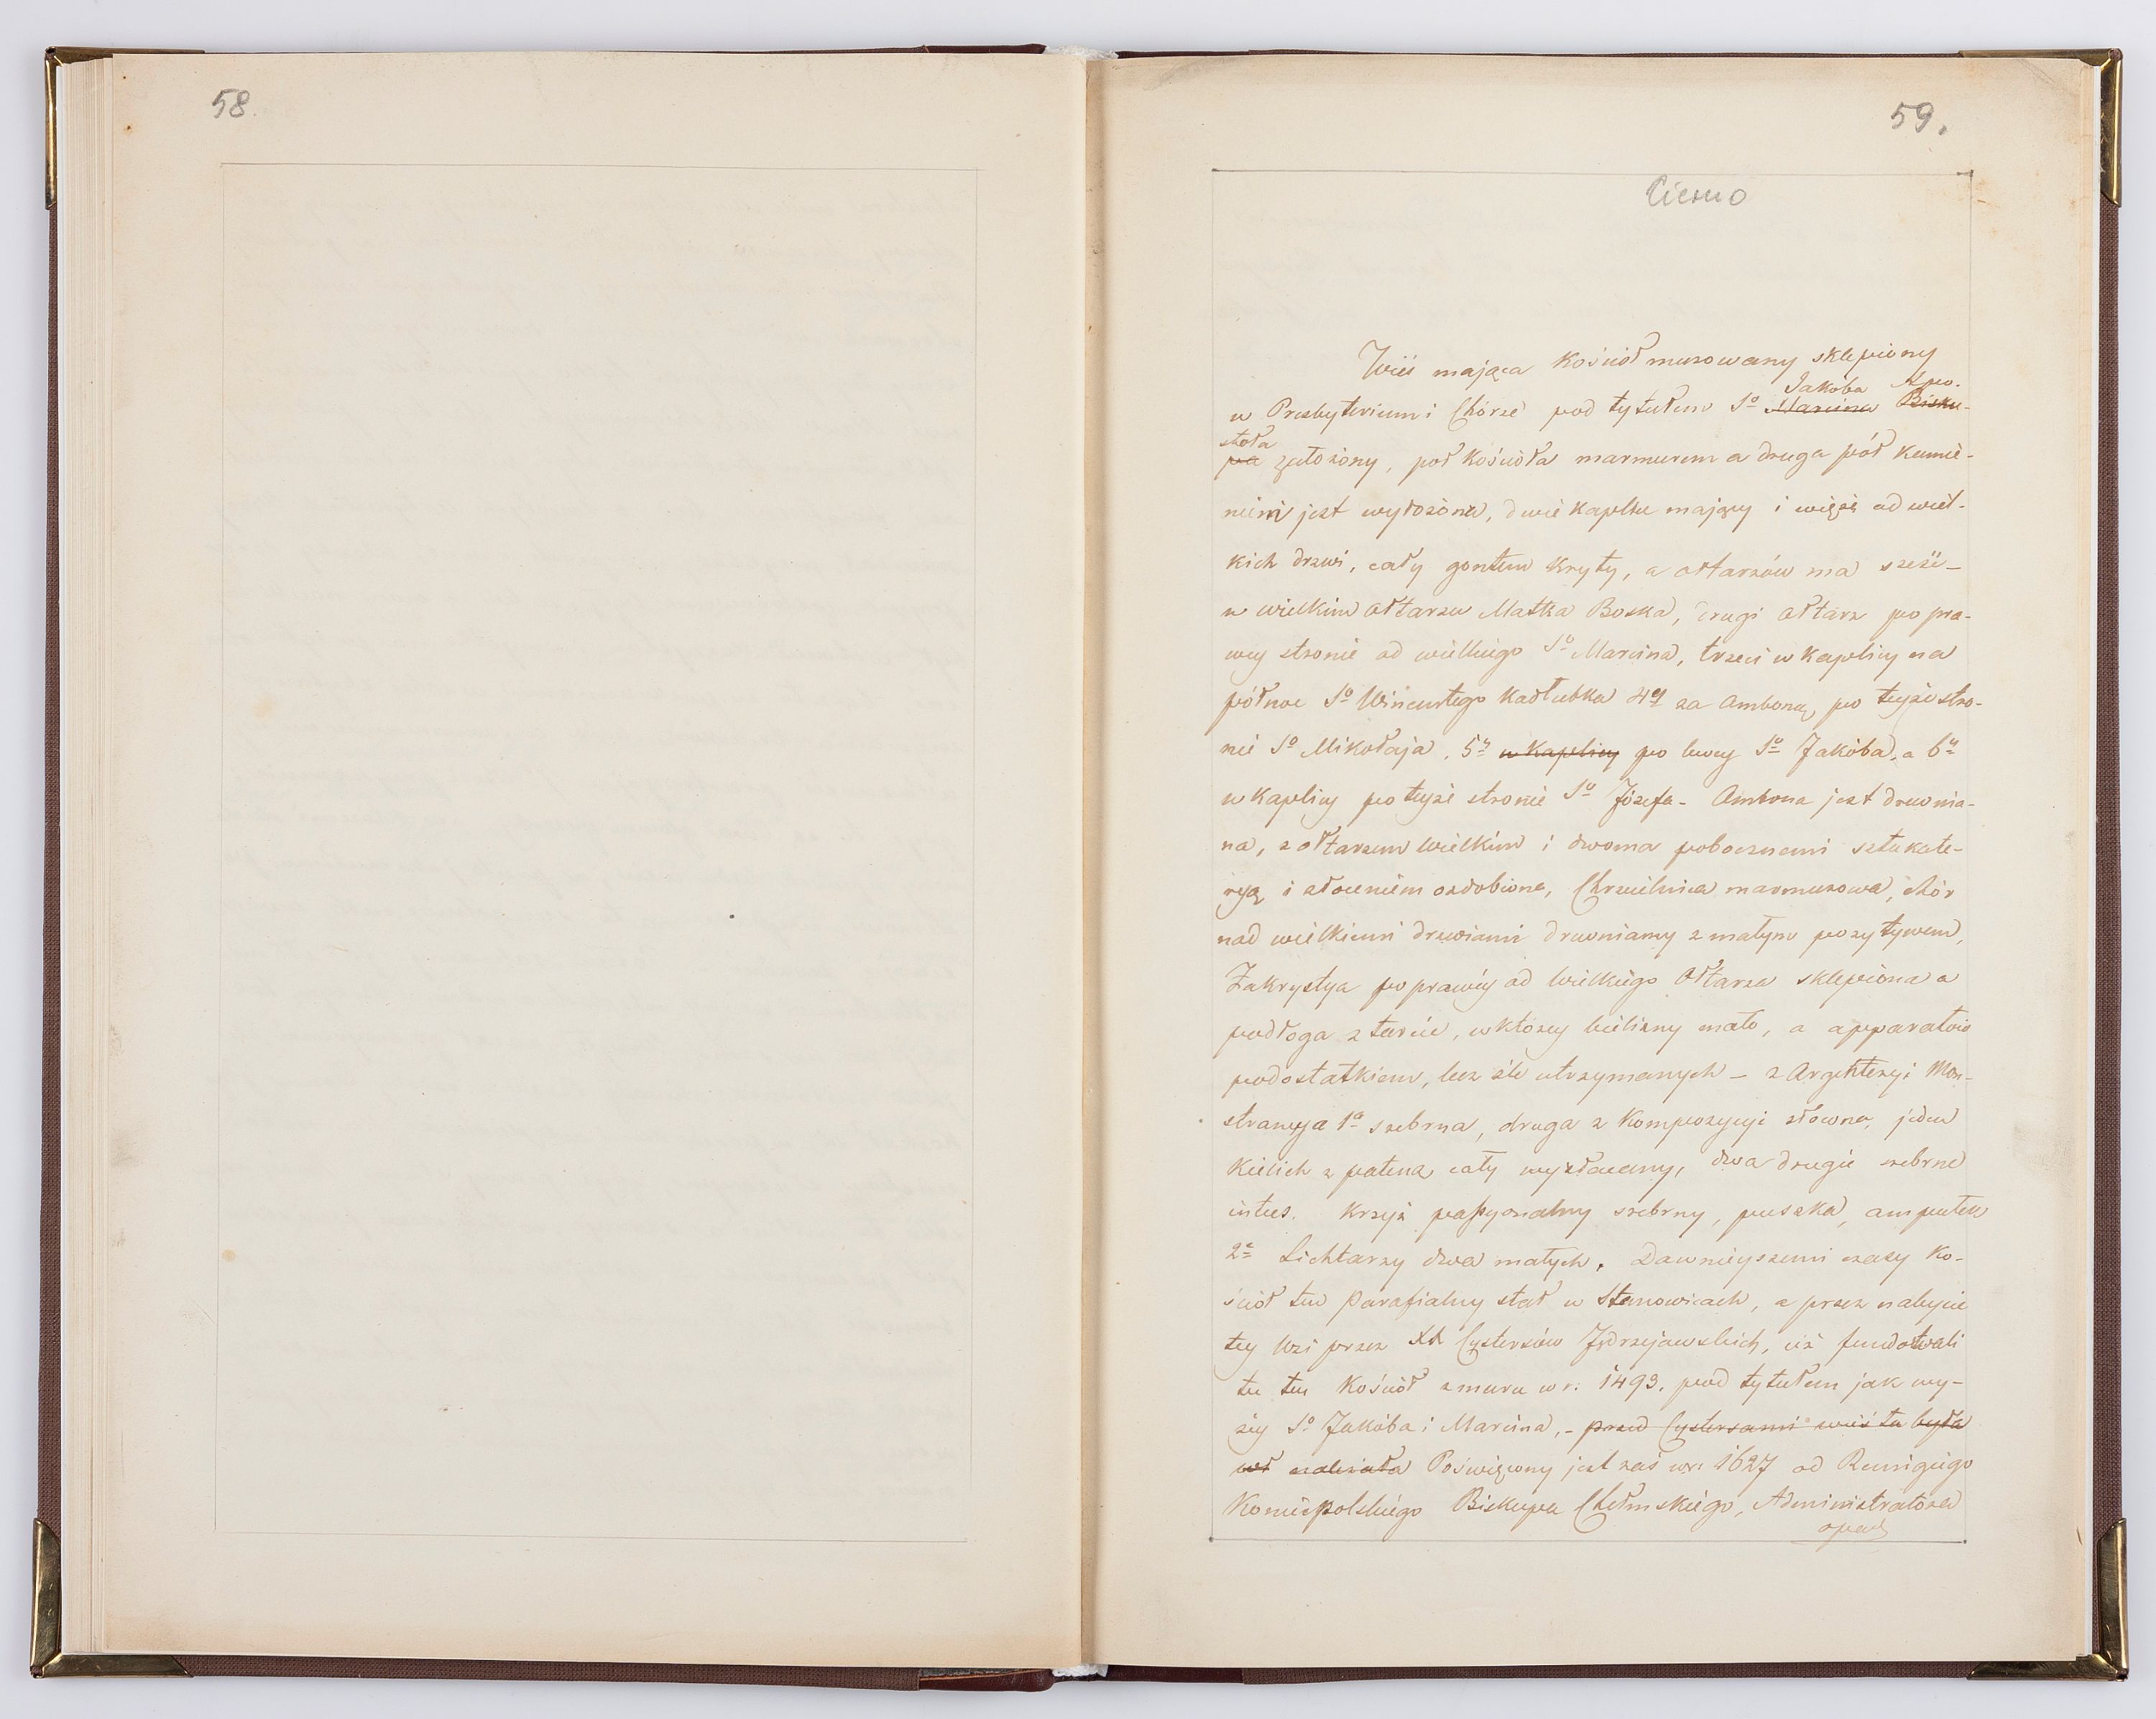 58.
59.
Cierno
Wieś mająca kościoł murowany sklepiony
Jakoba Apo-
w Presbyterium i Chórze pod tytułem Sº Marcina Bisku-
stoła
pa założony, poł kościoła marmurem a druga pół kamie-
niem jest wyłożona, dwie kaplice mający i wieżę od wiel-
kich drzwi, cały gontem kryty, a ołtarzów ma sześć_
w wielkim ołtarzu Matka Boska, drugi ołtarz po pra-
wey stronie od wielkiego Sº Marcina, trzeci w kaplicy na
północ Sº Wincentego Kadłubka 4y za Amboną po teyże stro-
nie Sº Mikołaja. 5y w kaplicy po lewey Sº Jakóba, a 6y
w kaplicy po teyże stronie Sº Józefa - Ambona jest drewnia-
na, z ołtarzem wielkim i dwoma pobocznemi sztukate-
ryą i złoceniem ozdobiona, Chrzcielnica marmurowa, chór
nad wielkiemi drzwiami drewniany z małym pozytywem,
Zakrystya po prawéy od wielkiego ołtarza sklepiona a
podłoga z tarcic, w ktorey bielizny mało, a apparatów
podostatkiem, lecz źle utrzymanych - z Argenteryi Mon-
strancya 1a srebrna, druga z kompozycyi złocona, jeden
kielich z pateną cały wyzłacany, dwa drugie srebrne
intus. Krzyż passyonalny srebrny, puszka, ampułek
2e Lichtarzy dwa małych. Dawnieyszemi czasy Ko-
ściół ten Parafialny stał w Stanowicach, a przez nabycie
tey wsi przez XX Cystersów Jędrzejowskich, ciż fundowali
tu ten Kościół z muru w r. 1493. pod tytułem jak wy-
żey Sº Jakóba i Marcina, - przed Cystersami wieś ta była
wł należała Poświęcony jest zaś w r. 1627 od Remigiego
Koniecpolskiego Biskupa Chełmskiego, Administratora
opac